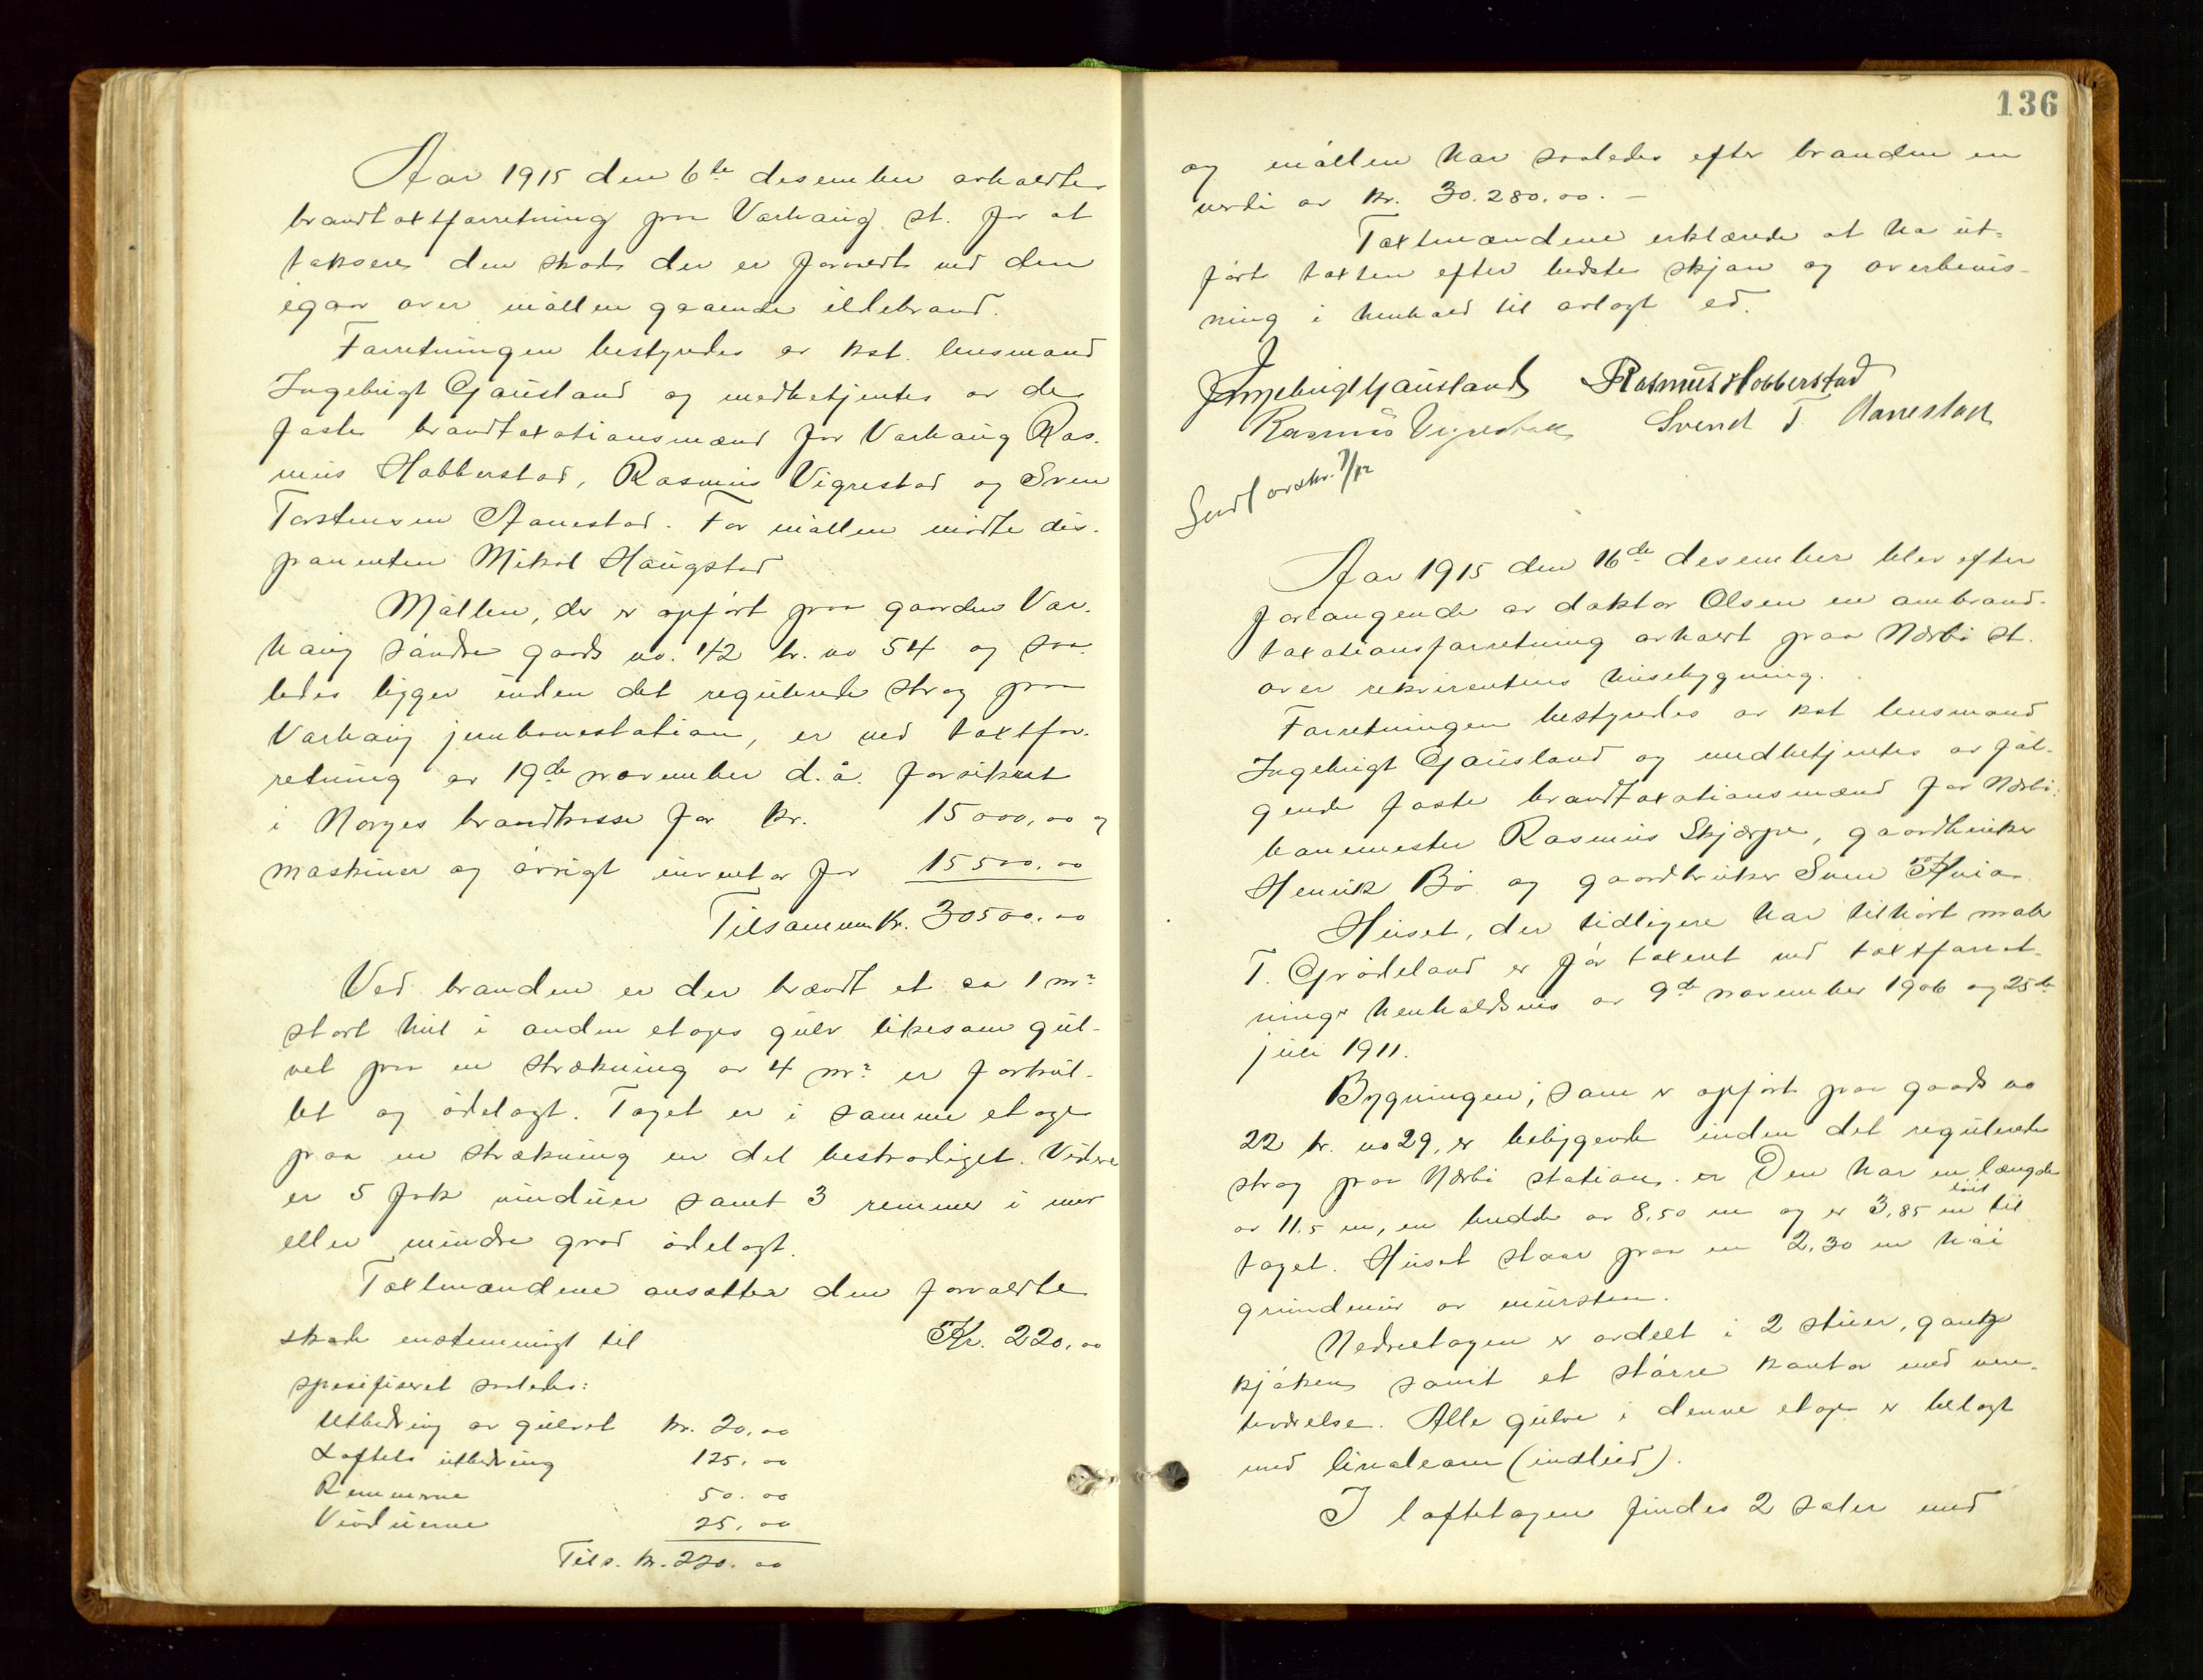 Aar 1915 den 6te desember avholdtes
brandtaxtforretning paa Varhaug st. for at
taksere den skade der er forvoldt ved den
igaar over møllen gaaende ildebrand.
Forretningen bestyredes av kst. lensmand
Ingebrigt Gausland og medbetjentes av de
faste brandtaxationsmænd for Varhaug Ras-
mus Hobberstad, Rasmus Vigrestad og Sven
Torstensen Aanestad. For møllen mødte dis-
ponenten Mikal Haugstad
Møllen, der er opført paa gaarden Var-
haug søndre gaards no. 42 br. no 54 og saa-
ledes ligger inden det regulerede strøg paa
Varhaug jernbanestation, er ved taxtfor-
retning av 19de november d.å. forsikret
i Norges brandkasse for kr. 15000,00 og
maskiner og øvrigt inventar for 15500,00
Tilsammen kr. 30500,00
Ved branden er der brændt et ca 1 m²
stort hul i anden etages gulv likesom gul-
vet paa en strækning av 4 m² er forkul-
let og ødelagt. Taget er i samme etage
paa en strækning en del beskadiget. Videre
er 5 fak vinduer samt 3 remmer i mer
eller mindre grad ødelagt.
Taxtmændene ansætter den forvoldte
skade enstemmigt til Kr. 220,00
spesifiseret saaledes:
Utbedring av gulvet kr. 20,00
Loftets utbedring 125,00
Remmerne 50.00
Vinduerne 25,00
Tils. kr. 220.00
136
og møllen har saaledes efter branden en
verdi av kr. 30.280,00. –
Taxtmændene erklærede at ha ut-
ført taxten efter bedste skjøn og overbevis-
ning i henhold til avlagt ed.
Ingebrigt Gausland Rasmus Hobberstad
Rasmus Vigrestad Svend T Aanestad
Sendt avskr. 7/12
Aar 1915 den 16de desember blev efter
forlangende av doktor Olsen en ombrand-
taxationsforretning avholdt paa Nærbø st.
over rekvirentens husebygning.
Forretningen bestyredes av kst lensmand
Ingebrigt Gausland og medbetjentes av føl-
gende faste brandtaxationsmænd for Nærbø:
banemester Rasmus Skjærpe, gaardbruker
Henrik Bø og gaardbruker Sven Hvia.
Huset, der tidligere har tilhørt maler
T. Grødeland er før taxeret ved taxtforret-
ninger henholdsvis av 9de november 1906 og 25de
juli 1911.
Bygningen, som er opført paa gaards no
22 br. no 29, er beliggende inden det regulerede
strøg paa Nærbø station. er Den har en længde
av 11.5 m, en bredde av 8,50 m og er 3,85 m høit til
taget. Huset staar paa en 2,30 m høi
grundmur av mursten.
Nedreetagen er avdelt i 2 stuer, gang
kjøken samt et større kontor med vente-
værelse. Alle gulve i denne etage er belagt
med linoleum (indleid).
I loftetagen findes 2 saler med